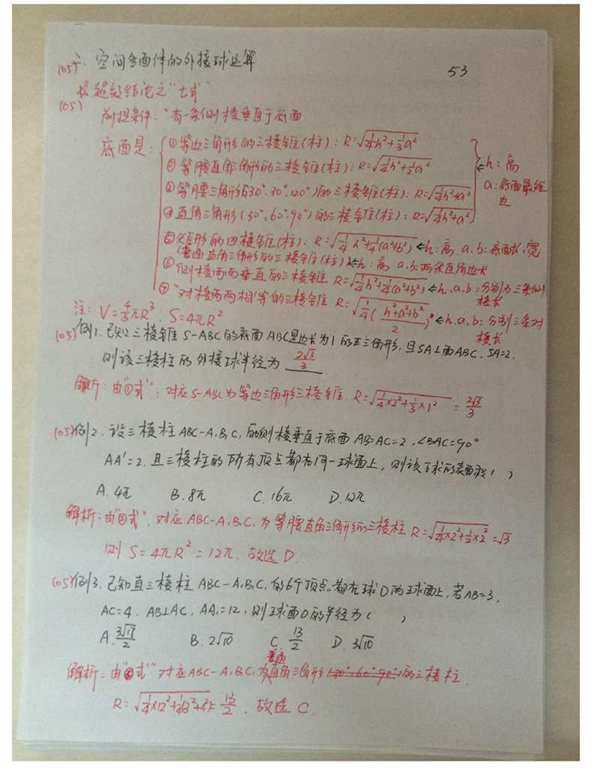 空间多面体的外接球运算
53
超级结论之“七式”
前提条件:“有一条侧棱垂直于底面
底面是:
①等边三角形的三棱锥(柱): R=√(1/4h²+1/3a²)
②等腰直角三角形的三棱锥(柱): R=√(1/4h²+1/2a²)
③等腰三角形(30°.30°.120°)的三棱锥(柱): R=√(1/4h²+a²)
④直角三角形(30°,60°,90°)的三棱锥(柱): R=√(1/4h²+a²)
h:高
a:底面最短边
⑤矩形的四棱锥(柱): R=√(1/4h²+1/4(a²+b²)) h:高, a.b:底面长、宽
(普通直角三角形的三棱锥(柱)) h:高 a.b:两条直角边长
⑥侧棱两两垂直的三棱锥 R=√(1/4h²+1/4(a²+b²)) h、a、b:分别为三条侧棱长
⑦“对棱两两相等的三棱锥 R=√(1/4(h²+a²+b²)/2) h.a.b:分别三条对棱长
注: V=4/3πR³. S=4πR²
例1.已知三棱锥S-ABC的底面ABC是边长为1的正三角形,且SA⊥面ABC,SA=2.
则该三棱柱的外接球半径为 2√3/3
解析:由①式”:对应S-ABC为等边三角形三棱锥. R=√(1/4×2²+1/3×1²) = 2√3/3
例2.设三棱柱ABC-A₁B₁C₁的侧棱垂直于底面AB=AC=2,∠BAC=90°
AA'=2.且三棱柱的所有顶点都在同一球面上,则该球的表面积( )
A.4π B.8π C.16π D.12π
解析:由“②式”.对应ABC-A₁B₁C₁为等腰直角三角形的三棱柱 R=√(1/4×2²+1/2×2²)=√3
则 S=4πR²=12π. 故选D.
例3.已知直三棱柱ABC-A₁B₁C₁的6个顶点都在球O的球面上,若AB=3,
AC=4. AB⊥AC, AA₁=12,则球面O的半径为( )
A.3√17/2 B.2√10 C.13/2 D.3√10
普通
解析:由“⑤式”对应ABC-A₁B₁C₁为直角三角形的三棱柱.
故选C.